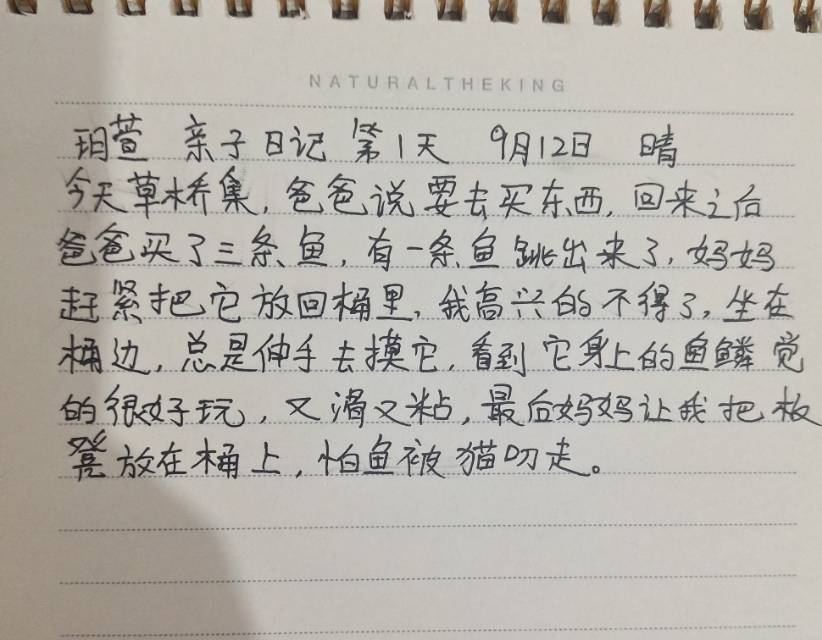 NATURALTHEKING
玥萱 亲子日记 第1天 9月12日 晴
今天草桥集,爸爸说要去买东西,回来之后
爸爸买了三条鱼,有一条鱼跳出来了,妈妈
赶紧把它放回桶里,我高兴的不得了,坐在
桶边,总是伸手去摸它,看到它身上的鱼鳞觉
的很好玩,又滑又粘,最后妈妈让我把板
凳放在桶上,怕鱼被猫叨走。